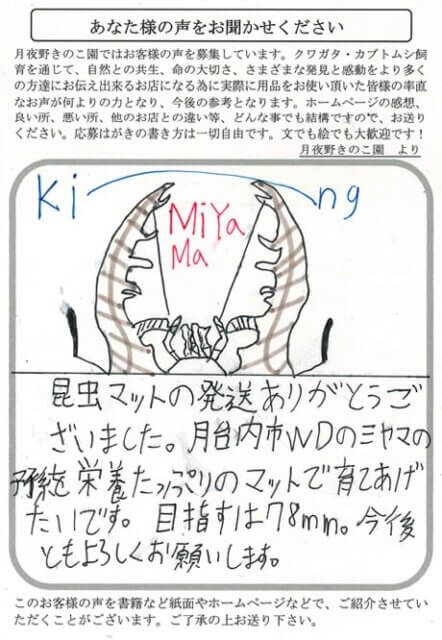 あなた様の声をお聞かせください
月夜野きのこ園ではお客様の声を募集しています。クワガタ・カブトムシ飼
育を通じて、自然との共生、命の大切さ、さまざまな発見と感動をより多く
の方達にお伝え出来るお店になる為に実際に用品をお使い頂いた皆様の率直
なお声が何よりの力となり、今後の参考となります。ホームページの感想、
良い所、悪い所、他のお店との違い等、どんな事でも結構ですので、お送り
ください。応募はがきの書き方は一切自由です。文でも絵でも大歓迎です！
月夜野きのこ園　より
King
MiYa
Ma
昆虫マットの発送ありがとうご
ざいました。胎内市WDのミヤマの
子孫を栄養たっぷりのマットで育てあげ
たいです。目指すは78mm。今後
ともよろしくお願いします。
このお客様の声を書籍など紙面やホームページなどで、ご紹介させてい
ただくことがございます。ご了承の上お送り下さい。